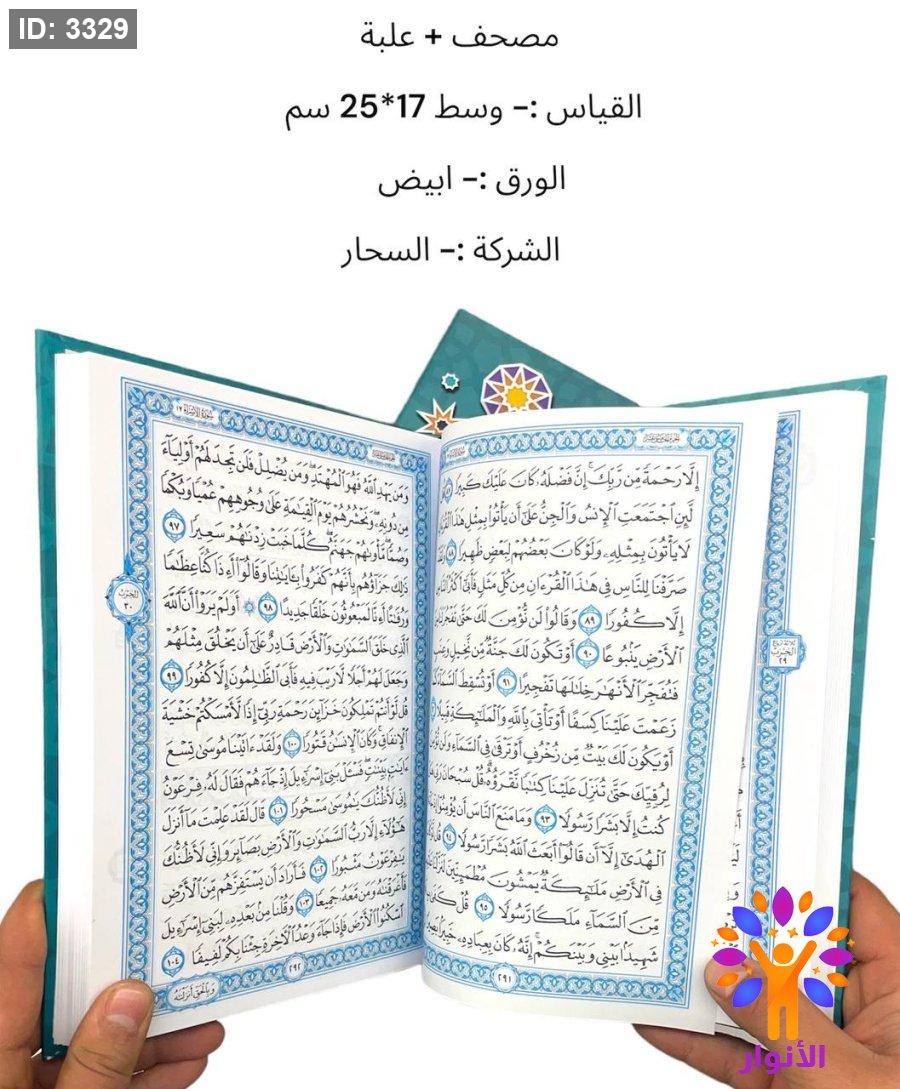 ID: 3329
مصحف + علبة
القياس :- وسط 17*25 سم
الورق :- ابيض
الشركة :- السحار
إِلَّا رَحْمَةً مِّن رَّبِّكَ ۚ إِنَّ فَضْلَهُۥ كَانَ عَلَيْكَ كَبِيرًا
لَّئِنِ ٱجْتَمَعَتِ ٱلْإِنسُ وَٱلْجِنُّ عَلَىٰٓ أَن يَأْتُوا۟ بِمِثْلِ هَٰذَا
لَا يَأْتُونَ بِمِثْلِهِۦ وَلَوْ كَانَ بَعْضُهُمْ لِبَعْضٍ ظَهِيرًا ٨٨
صَرَّفْنَا لِلنَّاسِ فِى هَٰذَا ٱلْقُرْءَانِ مِن كُلِّ مَثَلٍ فَأَبَىٰٓ أَكْثَرُ ٱلنَّاسِ
إِلَّا كُفُورًا ٨٩ وَقَالُوا۟ لَن نُّؤْمِنَ لَكَ حَتَّىٰ تَفْجُرَ لَنَا
ٱلْأَرْضِ يَنۢبُوعًا ٩٠ أَوْ تَكُونَ لَكَ جَنَّةٌ مِّن نَّخِيلٍ وَعِنَبٍ
فَتُفَجِّرَ ٱلْأَنْهَٰرَ خِلَٰلَهَا تَفْجِيرًا ٩١ أَوْ تُسْقِطَ ٱلسَّمَآءَ
زَعَمْتَ عَلَيْنَا كِسَفًا أَوْ تَأْتِىَ بِٱللَّهِ وَٱلْمَلَٰٓئِكَةِ قَبِيلًا
أَوْ يَكُونَ لَكَ بَيْتٌ مِّن زُخْرُفٍ أَوْ تَرْقَىٰ فِى ٱلسَّمَآءِ وَلَن نُّؤْمِنَ
لِرُقِيِّكَ حَتَّىٰ تُنَزِّلَ عَلَيْنَا كِتَٰبًا نَّقْرَؤُهُۥ ۗ قُلْ سُبْحَانَ رَبِّى
كُنتُ إِلَّا بَشَرًا رَّسُولًا ٩٣ وَمَا مَنَعَ ٱلنَّاسَ أَن يُؤْمِنُوٓا۟ إِذْ
ٱلْهُدَىٰٓ إِلَّآ أَن قَالُوٓا۟ أَبَعَثَ ٱللَّهُ بَشَرًا رَّسُولًا ٩٤ قُل
فِى ٱلْأَرْضِ مَلَٰٓئِكَةٌ يَمْشُونَ مُطْمَئِنِّينَ
مِّنَ ٱلسَّمَآءِ مَلَكًا رَّسُولًا ٩٥ قُلْ كَفَىٰ
شَهِيدًۢا بَيْنِى وَبَيْنَكُمْ ۚ إِنَّهُۥ كَانَ بِعِبَادِهِۦ خَبِيرًۢا
٢٩١
سُورَةُ الإِسْرَاءِ ١٧
وَمَن يَهْدِ ٱللَّهُ فَهُوَ ٱلْمُهْتَدِ ۖ وَمَن يُضْلِلْ فَلَن تَجِدَ لَهُمْ أَوْلِيَآءَ
مِن دُونِهِۦ ۖ وَنَحْشُرُهُمْ يَوْمَ ٱلْقِيَٰمَةِ عَلَىٰ وُجُوهِهِمْ عُمْيًا وَبُكْمًا
وَصُمًّا ۖ مَّأْوَىٰهُمْ جَهَنَّمُ ۖ كُلَّمَا خَبَتْ زِدْنَٰهُمْ سَعِيرًا ٩٧
ذَٰلِكَ جَزَآؤُهُم بِأَنَّهُمْ كَفَرُوا۟ بِـَٔايَٰتِنَا وَقَالُوٓا۟ أَءِذَا كُنَّا عِظَٰمًا
وَرُفَٰتًا أَءِنَّا لَمَبْعُوثُونَ خَلْقًا جَدِيدًا ٩٨ ۞ أَوَلَمْ يَرَوْا۟ أَنَّ ٱللَّهَ
ٱلَّذِى خَلَقَ ٱلسَّمَٰوَٰتِ وَٱلْأَرْضَ قَادِرٌ عَلَىٰٓ أَن يَخْلُقَ مِثْلَهُمْ
وَجَعَلَ لَهُمْ أَجَلًا لَّا رَيْبَ فِيهِ فَأَبَى ٱلظَّٰلِمُونَ إِلَّا كُفُورًا ٩٩
قُل لَّوْ أَنتُمْ تَمْلِكُونَ خَزَآئِنَ رَحْمَةِ رَبِّىٓ إِذًا لَّأَمْسَكْتُمْ خَشْيَةَ
ٱلْإِنفَاقِ ۚ وَكَانَ ٱلْإِنسَٰنُ قَتُورًا ١٠٠ وَلَقَدْ ءَاتَيْنَا مُوسَىٰ تِسْعَ
ءَايَٰتٍۭ بَيِّنَٰتٍ ۖ فَسْـَٔلْ بَنِىٓ إِسْرَٰٓءِيلَ إِذْ جَآءَهُمْ فَقَالَ لَهُۥ فِرْعَوْنُ
إِنِّى لَأَظُنُّكَ يَٰمُوسَىٰ مَسْحُورًا ١٠١ قَالَ لَقَدْ عَلِمْتَ مَآ أَنزَلَ
هَٰٓؤُلَآءِ إِلَّا رَبُّ ٱلسَّمَٰوَٰتِ وَٱلْأَرْضِ بَصَآئِرَ وَإِنِّى لَأَظُنُّكَ
يَٰفِرْعَوْنُ مَثْبُورًا ١٠٢ فَأَرَادَ أَن يَسْتَفِزَّهُم مِّنَ ٱلْأَرْضِ
فَأَغْرَقْنَٰهُ وَمَن مَّعَهُۥ جَمِيعًا ١٠٣ وَقُلْنَا مِنۢ بَعْدِهِۦ لِبَنِىٓ إِسْرَٰٓءِيلَ
ٱسْكُنُوا۟ ٱلْأَرْضَ فَإِذَا جَآءَ وَعْدُ ٱلْأَخِرَةِ جِئْنَا بِكُمْ لَفِيفًا ١٠٤
٢٩٢
وَبِالْحَقِّ أَنزَلْنَاهُ
الحزب ٣٠
ثلاثة أرباع الحزب ٢٩
الأنوار